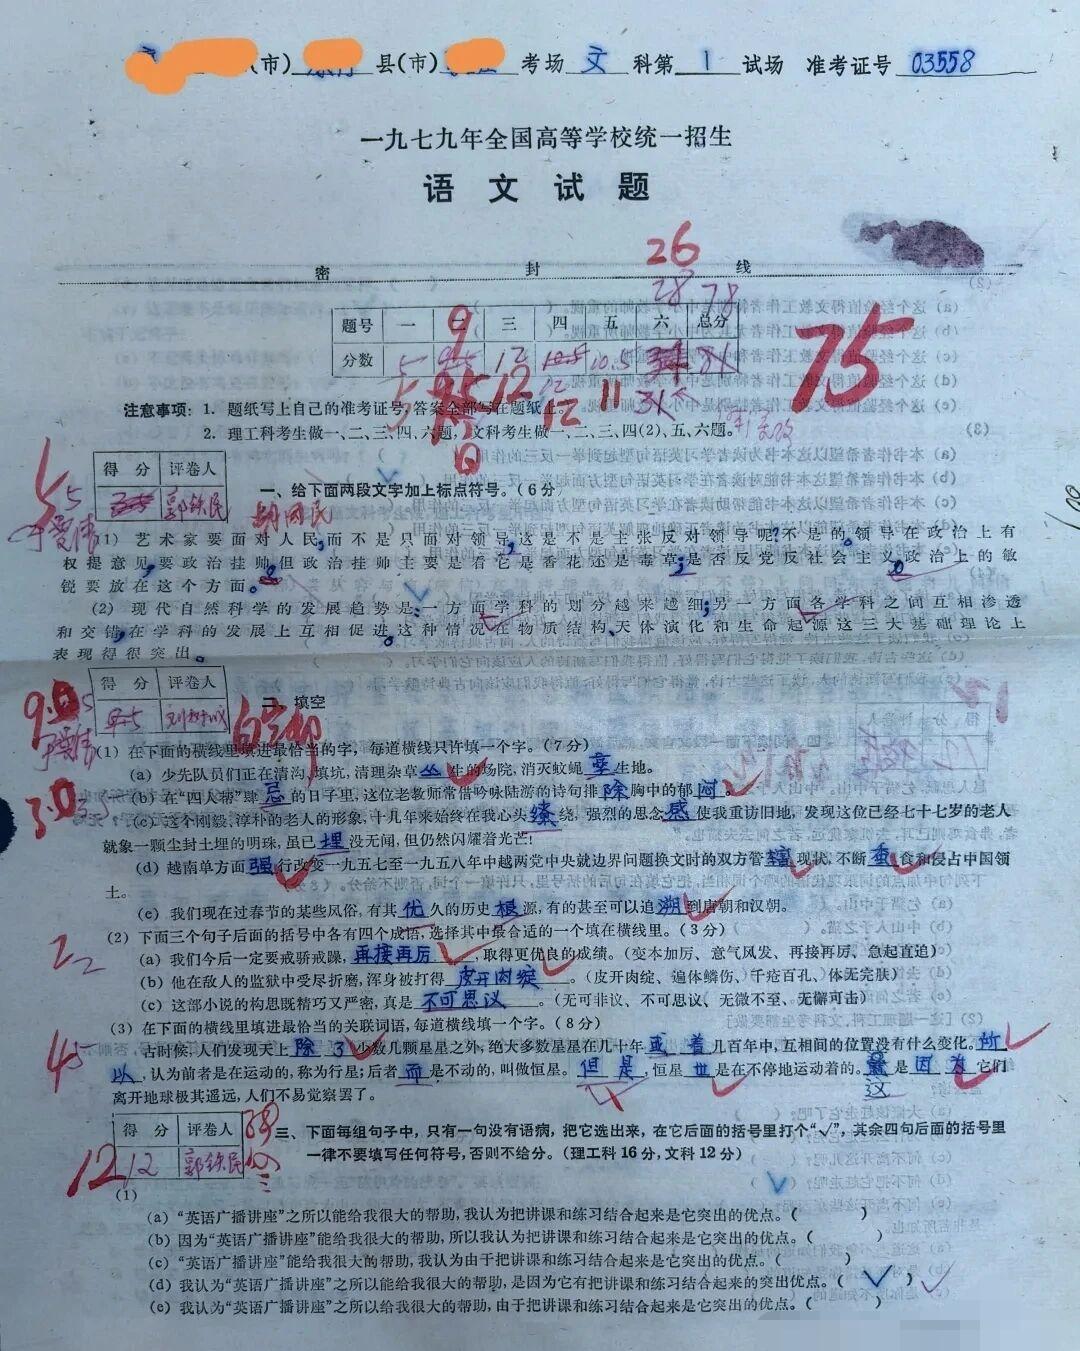 (市) 县(市) 考场 文 科第 1 试场 准考证号 03558
一九七九年全国高等学校统一招生
语文试题
26
密 封 线
28 78
题号 一 二 三 四 五 六 总分
9
分数 5 9.5 12 10.5 10.5 81
75
5 9.5 12 12 11 31
12
注意事项: 1. 题纸写上自己的准考证号,答案全部写在题纸上。
2. 理工科考生做一、二、三、四、六题, 文科考生做一、二、三、四(2)、五、六题。
得分 评卷人
5 郭铁民
一、给下面两段文字加上标点符号。(6分)
(1) 艺术家要面对人民,而不是只面对领导,这是不是主张反对领导呢?不是的。领导在政治上有
权提意见,要政治挂帅,但政治挂帅主要是看它是香花还是毒草;是否反党反社会主义。政治上的敏
锐要放在这个方面。
(2) 现代自然科学的发展趋势是:一方面学科的划分越来越细;另一方面各学科之间互相渗透
和交错,在学科的发展上互相促进。这种情况在物质结构、天体演化和生命起源这三大基础理论上
表现得很突出。
得分 评卷人
二、填空
(1) 在下面的横线里填进最恰当的字, 每道横线只许填一个字。(7分)
(a) 少先队员们正在清沟、填坑, 清理杂草丛生的场院, 消灭蚊蝇孳生地。
(b) 在“四人帮”肆忌的日子里, 这位老教师常借吟咏陆游的诗句排除胸中的郁闷。
(c) 这个刚毅、淳朴的老人的形象, 十几年来始终在我心头缭绕, 强烈的思念感使我重访旧地, 发现这位已经七十七岁的老人
就象一颗尘封土埋的明珠, 虽已埋没无闻, 但仍然闪耀着光芒!
(d) 越南单方面强行改变一九五七至一九五八年中越两党中央就边界问题换文时的双方管辖现状, 不断蚕食和侵占中国领
土。
(e) 我们现在过春节的某些风俗, 有其优久的历史根源, 有的甚至可以追溯到唐朝和汉朝。
(2) 下面三个句子后面的括号中各有四个成语, 选择其中最合适的一个填在横线里。(3分)
(a) 我们今后一定要戒骄戒躁, 再接再厉, 取得更优良的成绩。(变本加厉、意气风发、再接再厉、急起直追)
(b) 他在敌人的监狱中受尽折磨, 浑身被打得皮开肉绽。(皮开肉绽、遍体鳞伤、千疮百孔、体无完肤)
(c) 这部小说的构思既精巧又严密, 真是不可思议。(无可非议、不可思议、无微不至、无懈可击)
(3) 在下面的横线里填进最恰当的关联词语, 每道横线填一个字。(8分)
古时候, 人们发现天上除了少数几颗星星之外, 绝大多数星星在几十年或者几百年中, 互相间的位置没有什么变化。所
以, 认为前者是在运动的, 称为行星; 后者而是不动的, 叫做恒星。但是, 恒星也是在不停地运动着的。这是因为它们
离开地球极其遥远, 人们不易觉察罢了。
得分 评卷人
12 12 郭铁民
三、下面每组句子中, 只有一句没有语病, 把它选出来, 在它后面的括号里打个“√”, 其余四句后面的括号里
一律不要填写任何符号, 否则不给分。(理工科16分, 文科12分)
(1)
(a) “英语广播讲座”之所以能给我很大的帮助, 我认为把讲课和练习结合起来是它突出的优点。( )
(b) 因为“英语广播讲座”能给我很大的帮助, 所以我认为把讲课和练习结合起来是它突出的优点。( )
(c) “英语广播讲座”能给我很大的帮助, 我认为由于把讲课和练习结合起来是它突出的优点。( )
(d) 我认为“英语广播讲座”之所以能给我很大的帮助, 是因为它有把讲课和练习结合起来的突出优点。( √ )
(e) 我认为“英语广播讲座”之所以给我很大的帮助, 由于把讲课和练习结合起来是它突出的优点。( )